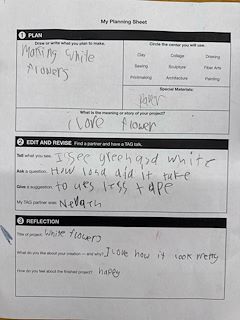 My Planning Sheet
1 PLAN
Draw or write what you plan to make.
Making white
flowers
Circle the center you will use.
Clay Collage Drawing
Sewing Sculpture Fiber Arts
Printmaking Architecture Painting
Special Materials:
Paper
What is the meaning or story of your project?
I love flower
2 EDIT AND REVISE Find a partner and have a TAG talk.
Tell what you see. I see green and white
Ask a question. How long did it take
Give a suggestion. to ues less tape
My TAG partner was:
3 REFLECTION
Title of project: white flowers
What do you like about your creation — and why? I love how it look
How do you feel about the finished project? happy